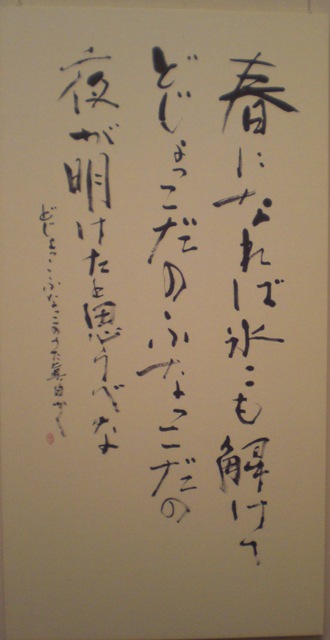 春になれば氷こも解けて
どじょっこだのふなっこだの
夜が明けたと思うべな
どじょっこふなっこのうた